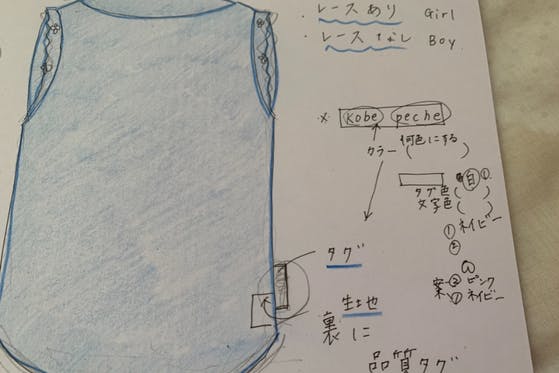 ・レースあり Girl
・レースなし Boy
※ Kobe peche
カラー 何色にする
( )
白 ①
タグ色 ( )
文字色 ( )
① ネイビー
②
タグ
案 ② ピンク
① ネイビー
生地
裏に
品質タグ